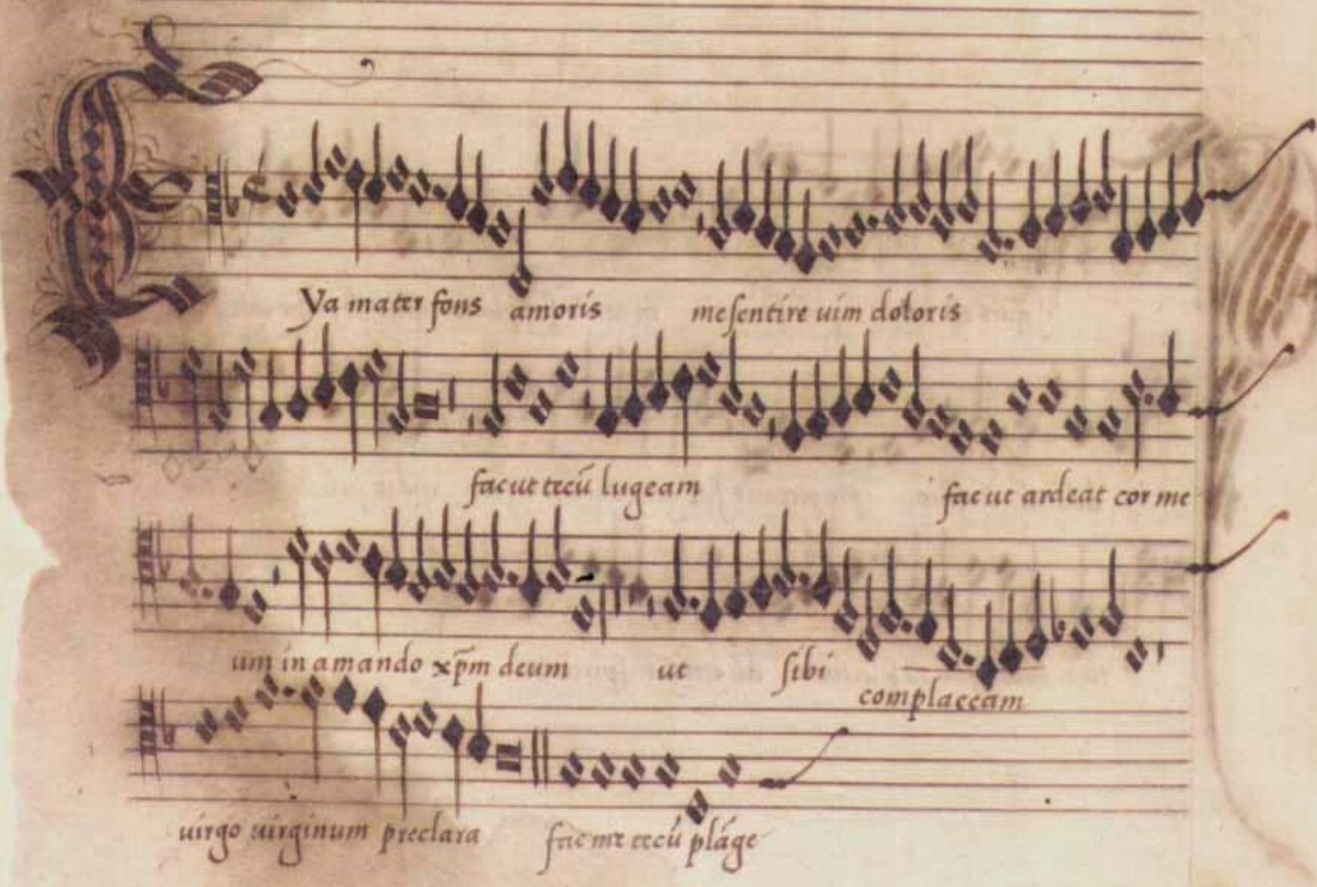 Eya mater fons amoris me sentire uim doloris
fac ut tecū lugeam fac ut ardeat cor me
um in amando xp̄m deum ut sibi complaceam
uirgo uirginum preclara fac me tecū plāge